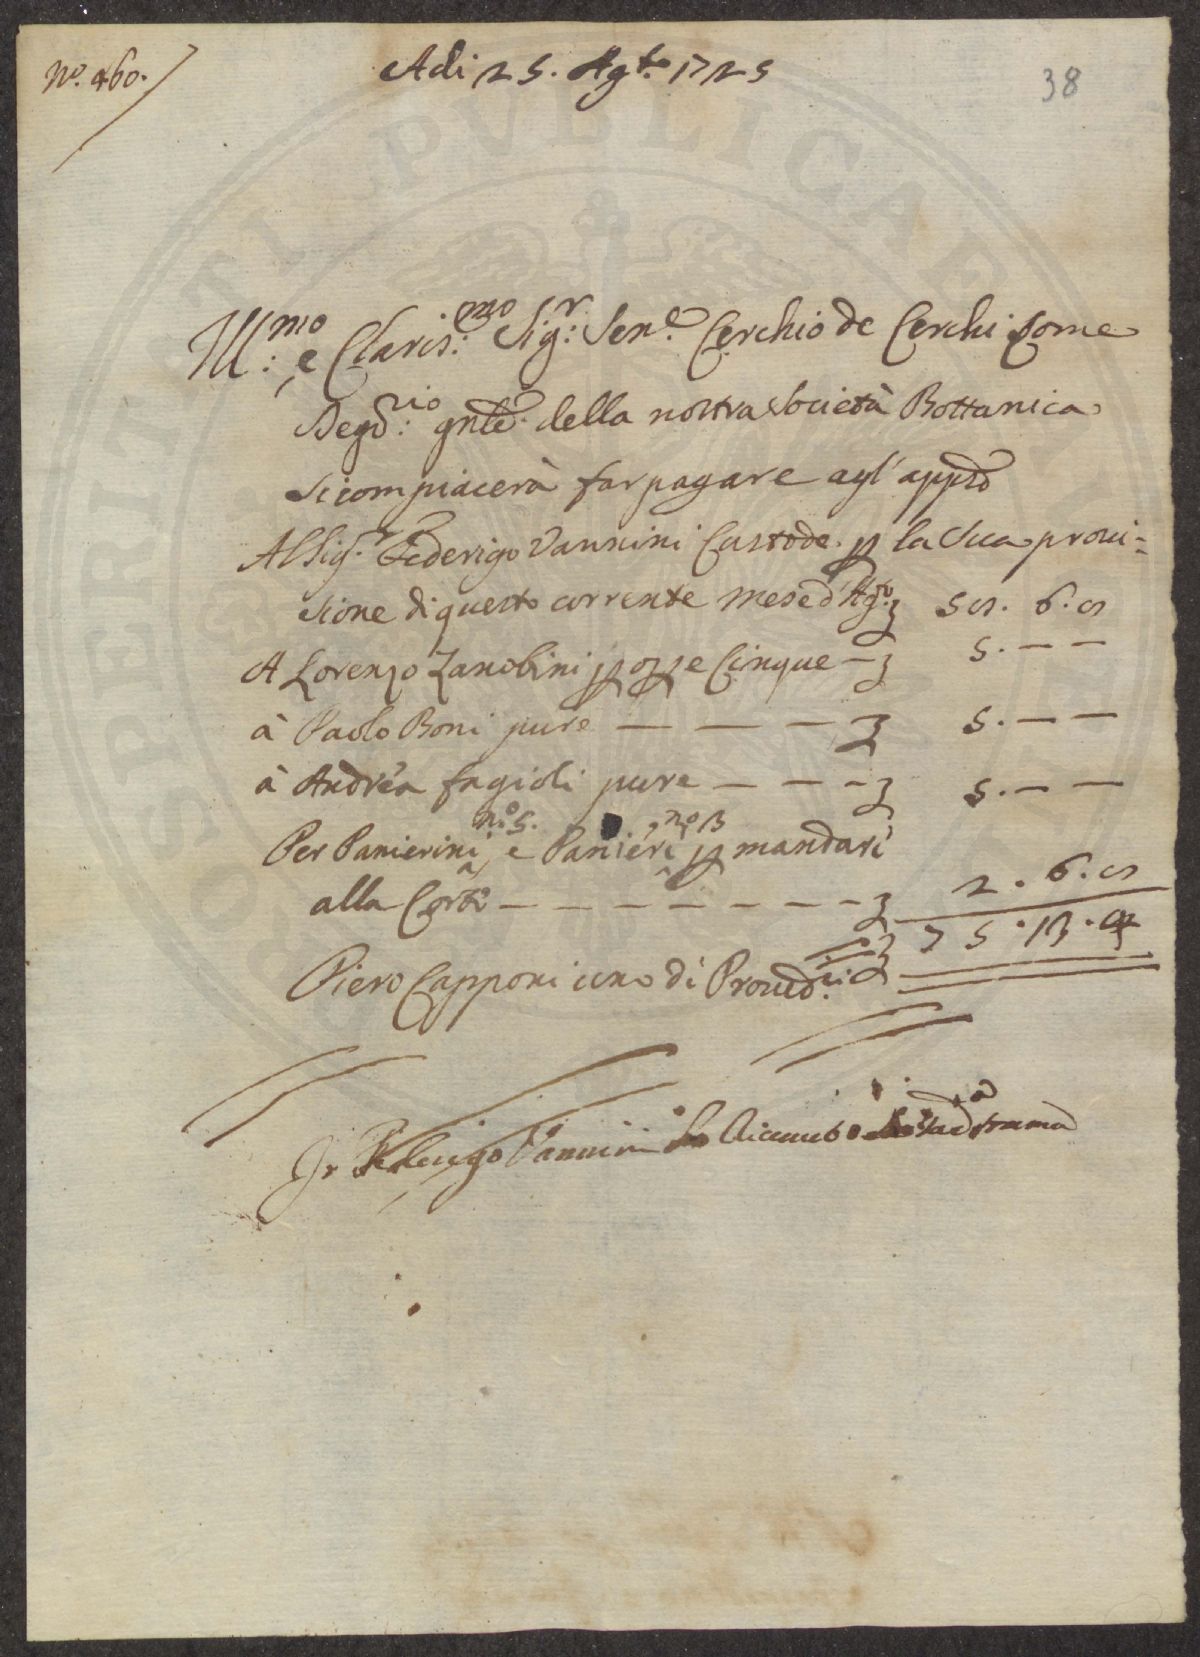 N.o 460.
Adi 25. Ag.to 1725
38
Ill.mo e Claris.mo Sig.r Sen.e Cerchio de Cerchi Come
Seg.rio gnle della nostra Società Bottanica
si compiacerà far pagare agl'app.o
Al Sig.r Federigo Vannini Custode p la Sua provi=
sione di questo corrente mese d'Ag.to 6.
A Lorenzo Zanobini p opre Cinque — 5. — —
à Paolo Boni pure — — — — 5. — —
à Andrea fagioli pure — — — 5. — —
Per Panierini n.o 5. e Panieri n.o 13 p mandare
alla Corte — — — — — — — — 2. 6. 8
75. 13. 4
Piero Capponi uno di Proved.ri
Io Federigo Vannini ho Riceuuto somma